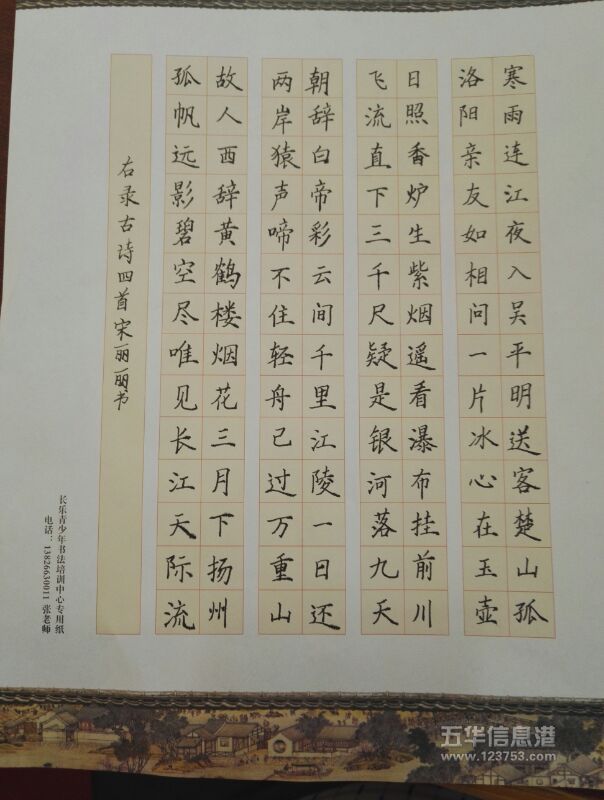 寒雨连江夜入吴平明送客楚山孤
洛阳亲友如相问一片冰心在玉壶
日照香炉生紫烟遥看瀑布挂前川
飞流直下三千尺疑是银河落九天
朝辞白帝彩云间千里江陵一日还
两岸猿声啼不住轻舟已过万重山
故人西辞黄鹤楼烟花三月下扬州
孤帆远影碧空尽唯见长江天际流
右录古诗四首宋丽丽书
长乐青少年书法培训中心专用纸
电话：13826630011 张老师
五华信息港
www.123753.com